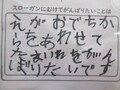 スローガンにむけてがんばりたいことは
えがおでちか
らをあわせて
たまいれをがん
ばりたいです